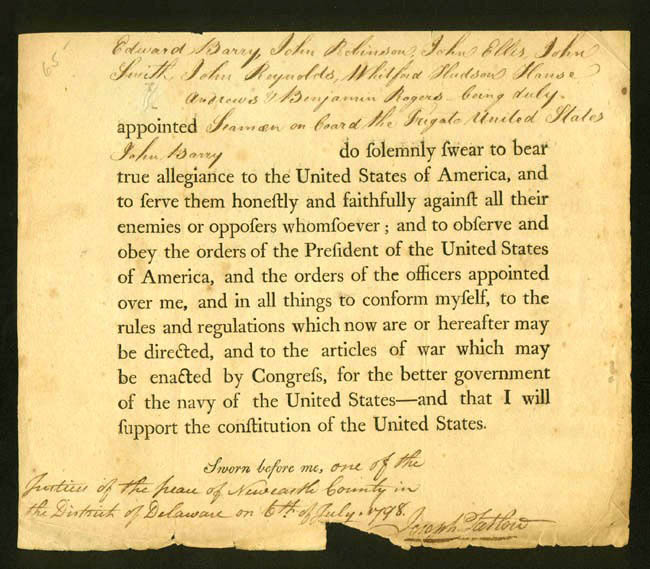 65
Edward Barry, John Robinson, John Ellis, John
Smith, John Reynolds, Whitford Hudson Hanse
Andrews & Benjamin Rogers being duly
appointed Seamen on board the Frigate United States
John Barry do ſolemnly ſwear to bear
true allegiance to the United States of America, and
to ſerve them honeſtly and faithfully againſt all their
enemies or oppoſers whomſoever; and to obſerve and
obey the orders of the Preſident of the United States
of America, and the orders of the officers appointed
over me, and in all things to conform myſelf, to the
rules and regulations which now are or hereafter may
be directed, and to the articles of war which may
be enacted by Congreſs, for the better government
of the navy of the United States—and that I will
ſupport the conſtitution of the United States.
Sworn before me, one of the
Justices of the peace of Newcastle County in
the District of Delaware on 6th of July. 1798.
Joseph Tatlow